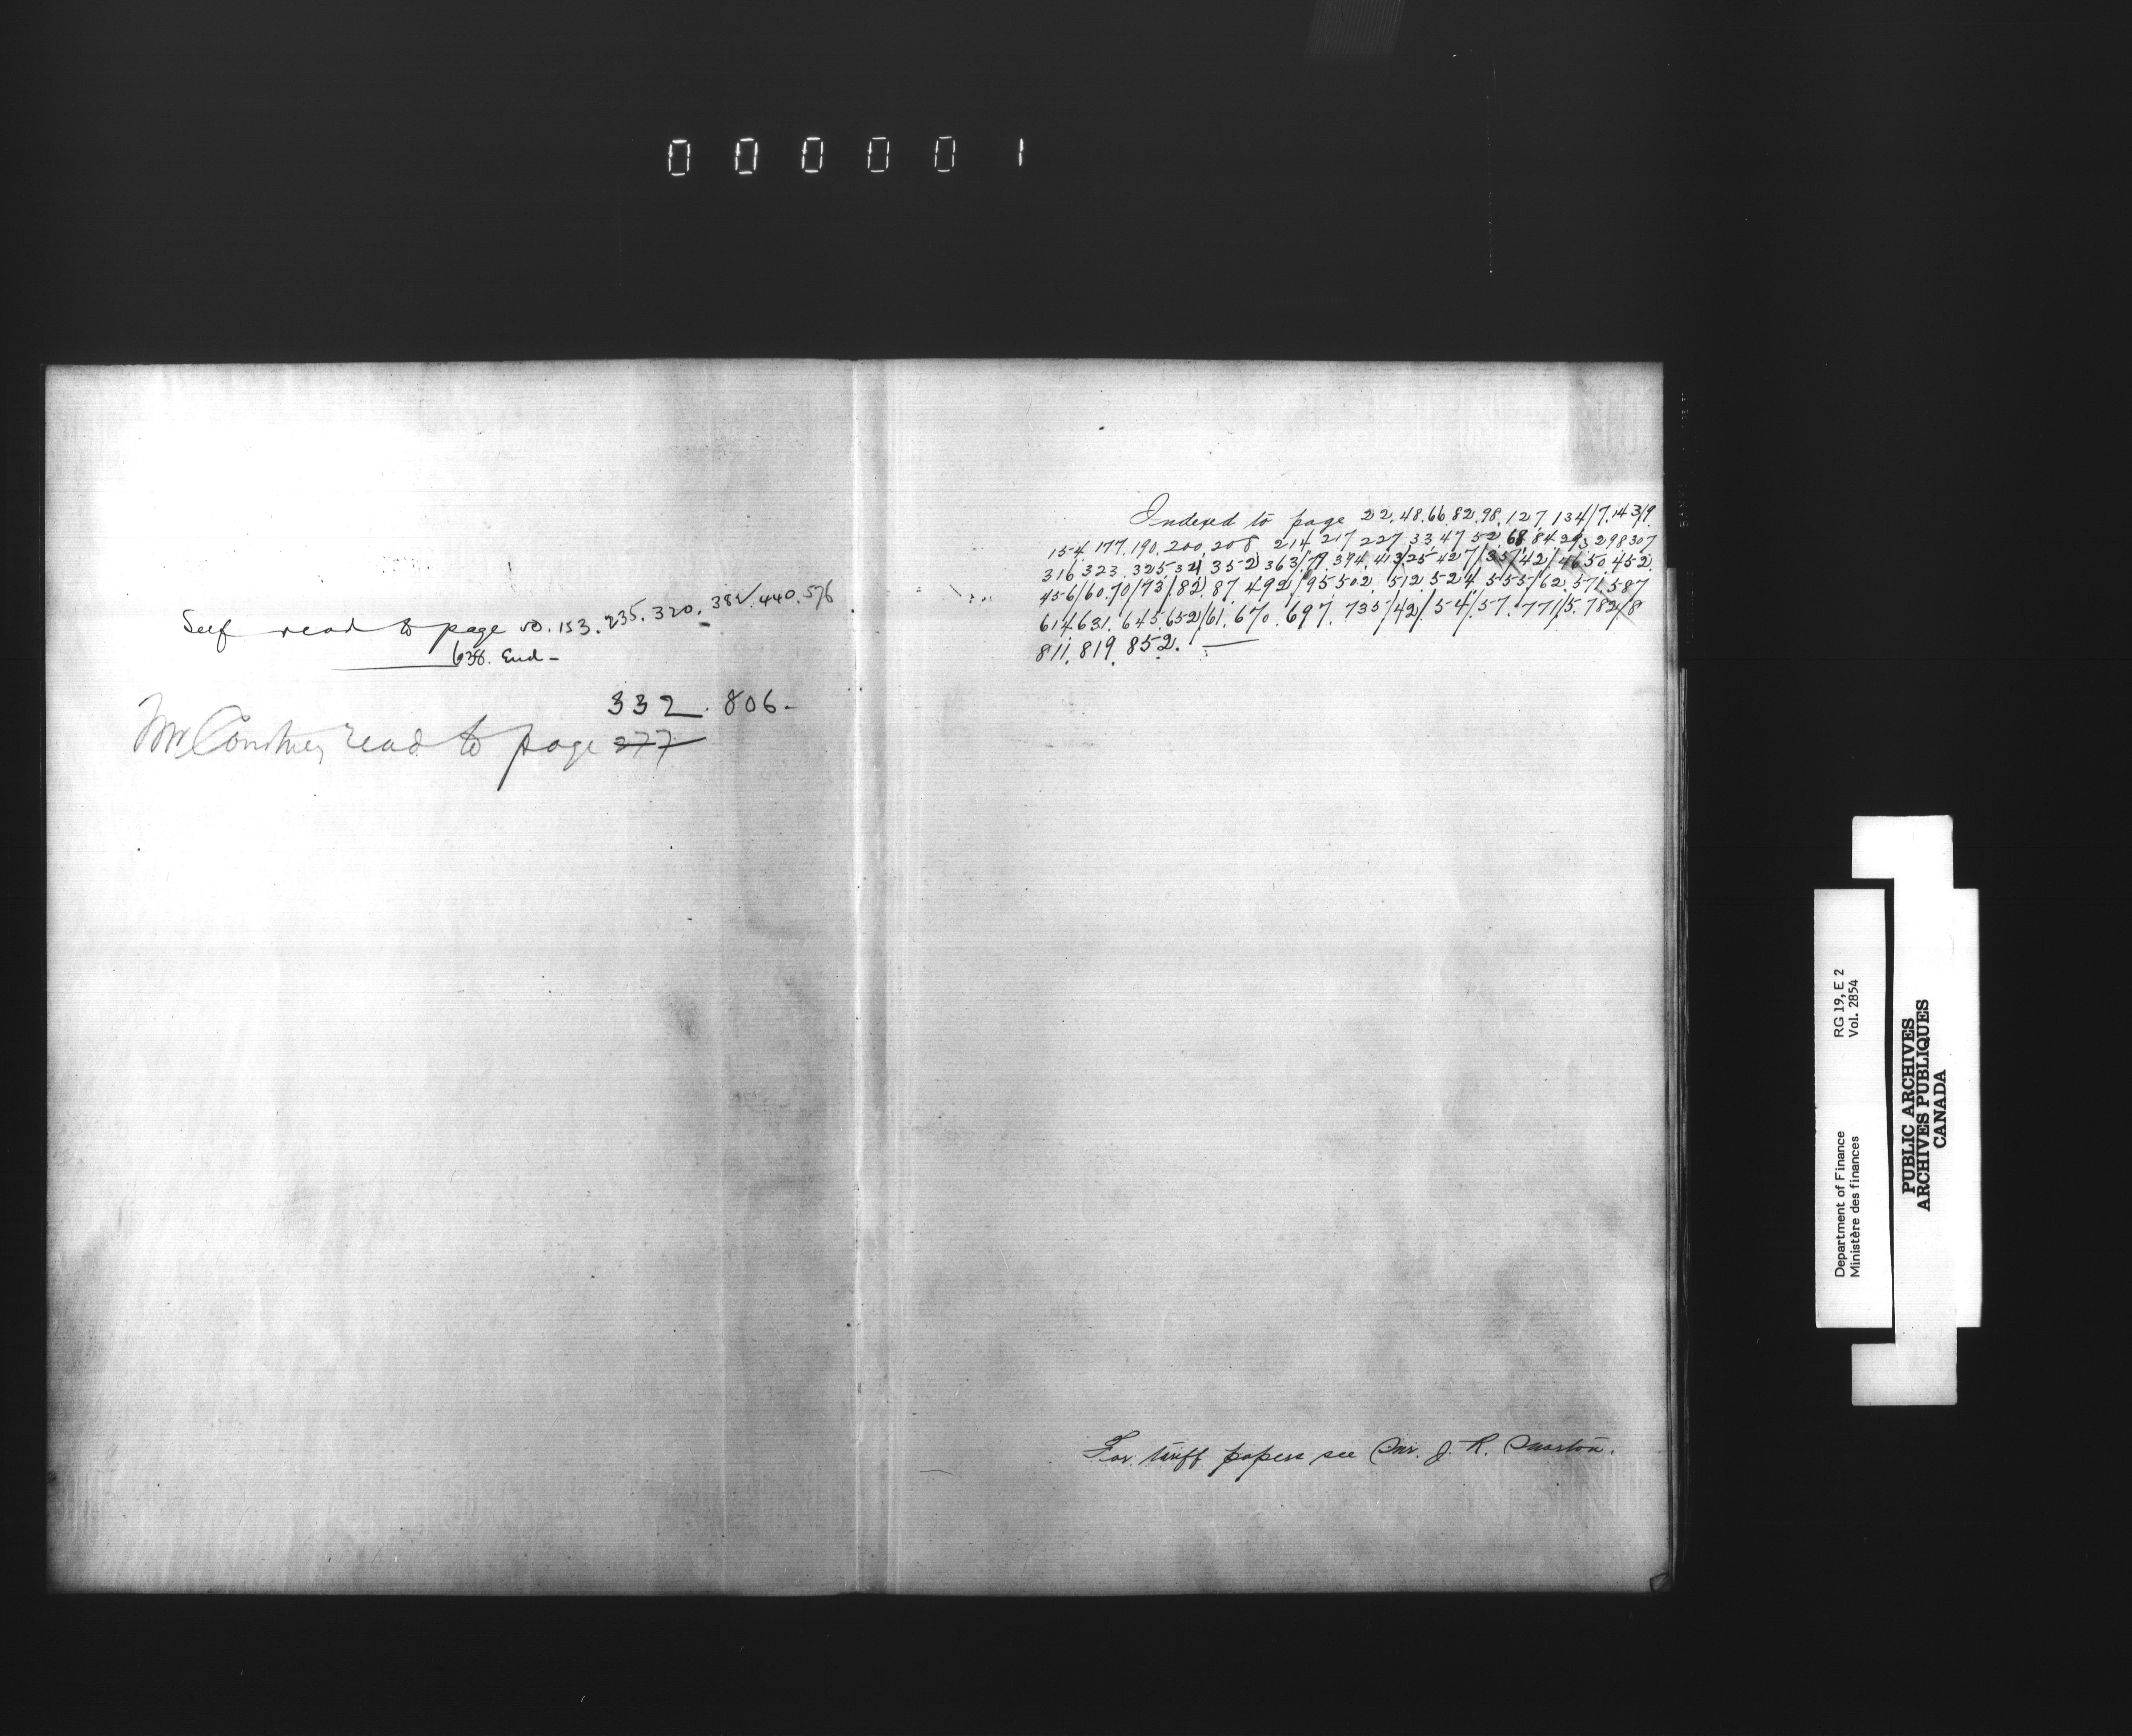 000001
Self read to page 50. 153. 235. 320. 382. 440. 576
638. End -
332. 806 -
Mr Courtney read to page 277
Indexed to page 22. 48. 66. 82. 98. 127. 134/7. 143/9.
154. 177. 190. 200. 208. 214. 217 227. 33. 47 52. 68. 84 293 298 307
316 323. 325 341 352 363/79 394. 413/25 427/35/42/46 50. 452.
456/60. 70/73/82. 87 492/95 502. 512. 524. 555/62. 571. 587
614 631. 645. 652/61. 670. 697. 735/42/54/57. 771/5. 782/8
811. 819. 852. —
For tariff papers see Mr. J. R.
RG 19, E 2
Vol. 2854
Department of Finance
Ministère des finances
PUBLIC ARCHIVES
ARCHIVES PUBLIQUES
CANADA